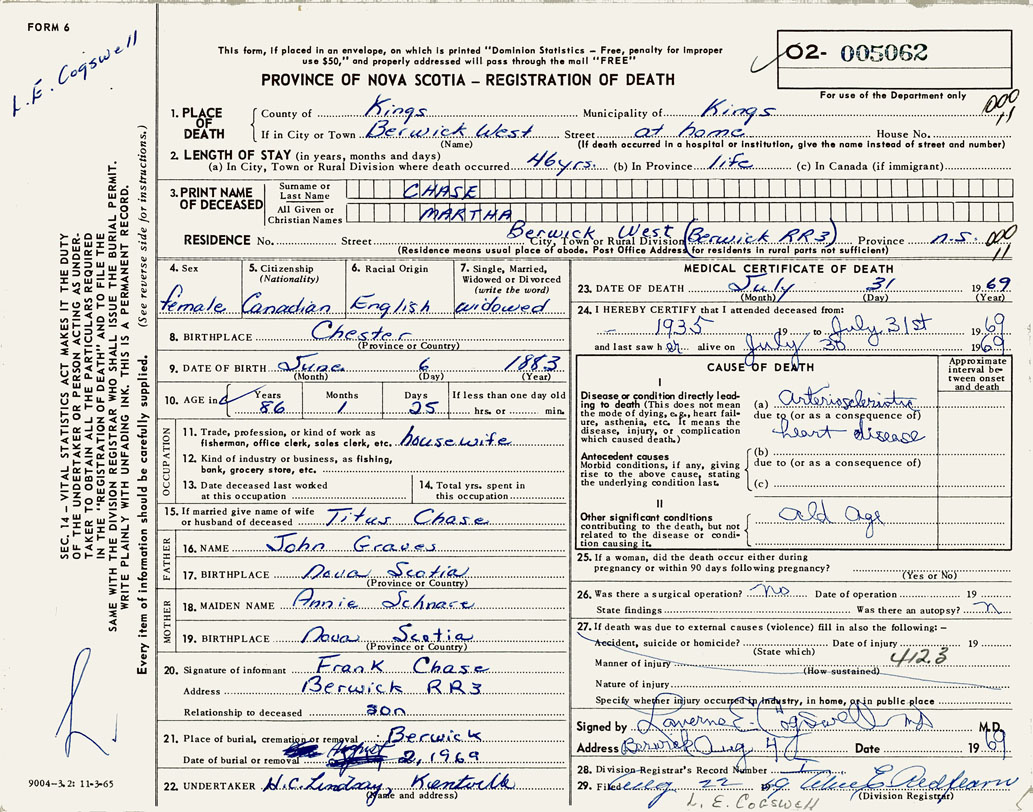 FORM 6
L.E. Cogswell
This form, if placed in an envelope, on which is printed "Dominion Statistics — Free, penalty for improper
use $50," and properly addressed will pass through the mail "FREE"
PROVINCE OF NOVA SCOTIA — REGISTRATION OF DEATH
O2- 005062
For use of the Department only
1. PLACE OF DEATH
County of Kings Municipality of Kings
000 11
If in City or Town Berwick West Street at home House No.
(Name) (If death occurred in a hospital or institution, give the name instead of street and number)
2. LENGTH OF STAY (in years, months and days)
(a) In City, Town or Rural Division where death occurred 46 yrs. (b) In Province life (c) In Canada (if immigrant)
3. PRINT NAME OF DECEASED
Surname or Last Name CHASE
All Given or Christian Names MARTHA
RESIDENCE No. Street Berwick West (Berwick RR3) Province N.S. 000 11
City, Town or Rural Division
(Residence means usual place of abode. Post Office Address for residents in rural parts not sufficient)
4. Sex
female
5. Citizenship
(Nationality)
Canadian
6. Racial Origin
English
7. Single, Married,
Widowed or Divorced
(write the word)
widowed
8. BIRTHPLACE Chester
(Province or Country)
9. DATE OF BIRTH June 6 1883
(Month) (Day) (Year)
10. AGE in
Years Months Days If less than one day old
86 1 25 hrs. or min.
OCCUPATION
11. Trade, profession, or kind of work as
fisherman, office clerk, sales clerk, etc. housewife
12. Kind of industry or business, as fishing,
bank, grocery store, etc.
13. Date deceased last worked
at this occupation
14. Total yrs. spent in
this occupation
15. If married give name of wife
or husband of deceased Titus Chase
FATHER
16. NAME John Graves
17. BIRTHPLACE Nova Scotia
(Province or Country)
MOTHER
18. MAIDEN NAME Annie Schnare
19. BIRTHPLACE Nova Scotia
(Province or Country)
20. Signature of informant Frank Chase
Address Berwick RR3
Relationship to deceased son
21. Place of burial, cremation or removal Berwick
Date of burial or removal August 2, 1969
22. UNDERTAKER H.C. Lindsay, Kentville
(Name and address)
MEDICAL CERTIFICATE OF DEATH
23. DATE OF DEATH July 31 1969
(Month) (Day) (Year)
24. I HEREBY CERTIFY that I attended deceased from:
1935 19 to July 31st 1969
and last saw her alive on July 30 1969
CAUSE OF DEATH
Approximate
interval be-
tween onset
and death
I
Disease or condition directly lead-
ing to death (This does not mean
the mode of dying, e.g., heart fail-
ure, asthenia, etc. It means the
disease, injury, or complication
which caused death.)
(a) Arteriosclerotic
due to (or as a consequence of)
heart disease
Antecedent causes
Morbid conditions, if any, giving
rise to the above cause, stating
the underlying condition last.
(b)
due to (or as a consequence of)
(c)
II
Other significant conditions
contributing to the death, but not
related to the disease or condi-
tion causing it.
old age
25. If a woman, did the death occur either during
pregnancy or within 90 days following pregnancy?
(Yes or No)
26. Was there a surgical operation? no Date of operation 19
State findings Was there an autopsy? n
27. If death was due to external causes (violence) fill in also the following: —
Accident, suicide or homicide? Date of injury 19
(State which)
412.3
Manner of injury
(How sustained)
Nature of injury
Specify whether injury occurred in industry, in home, or in public place
Signed by Laverne E. Cogswell MD M.D.
Address Berwick Aug 4 Date 1969
28. Division Registrar's Record Number
29. Filed Aug 22
(Division Registrar)
L. E. COGSWELL
SEC. 14 — VITAL STATISTICS ACT MAKES IT THE DUTY
OF THE UNDERTAKER OR PERSON ACTING AS UNDER-
TAKER TO OBTAIN ALL THE PARTICULARS REQUIRED
IN THE "REGISTRATION OF DEATH" AND TO FILE THE
SAME WITH THE DIVISION REGISTRAR WHO SHALL ISSUE THE BURIAL PERMIT.
WRITE PLAINLY WITH UNFADING INK. THIS IS A PERMANENT RECORD.
Every item of information should be carefully supplied. (See reverse side for instructions.)
9004-3.2: 11-3-65